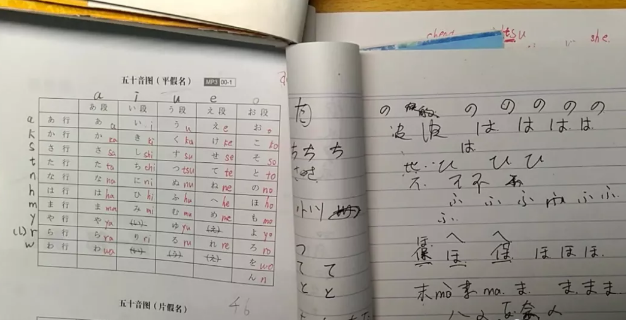 chmu tsu she.
五十音图（平假名） MP3 00-1
a i u e o
あ段 い段 う段 え段 お段
a あ行 あ a い i う u え e お o
k か行 か ka き ki く ku け ke こ ko
s さ行 さ sa し shi す su せ se そ so
t た行 た ta ち chi つ tsu て te と to
n な行 な na に ni ぬ nu ね ne の no
h は行 は ha ひ hi ふ hu へ he ほ ho
m ま行 ま ma み mi む mu め me も mo
y や行 や ya (い) ゆ yu (え) よ yo
(l) r ら行 ら ra り ri る ru れ re ろ ro
w わ行 わ wa (い) (う) (え) を wo
ん n
五十音图（片假名）
46
た
ちちち
つ
てて
とと
の の の の の の
波 は は は は
は
ひ ひ
不 ふ ふ ふ ふ ふ
ふ
へ へ
ほ
保 ほ 保 ほ ほ ほ
末 ma 末 ma. ま ままま